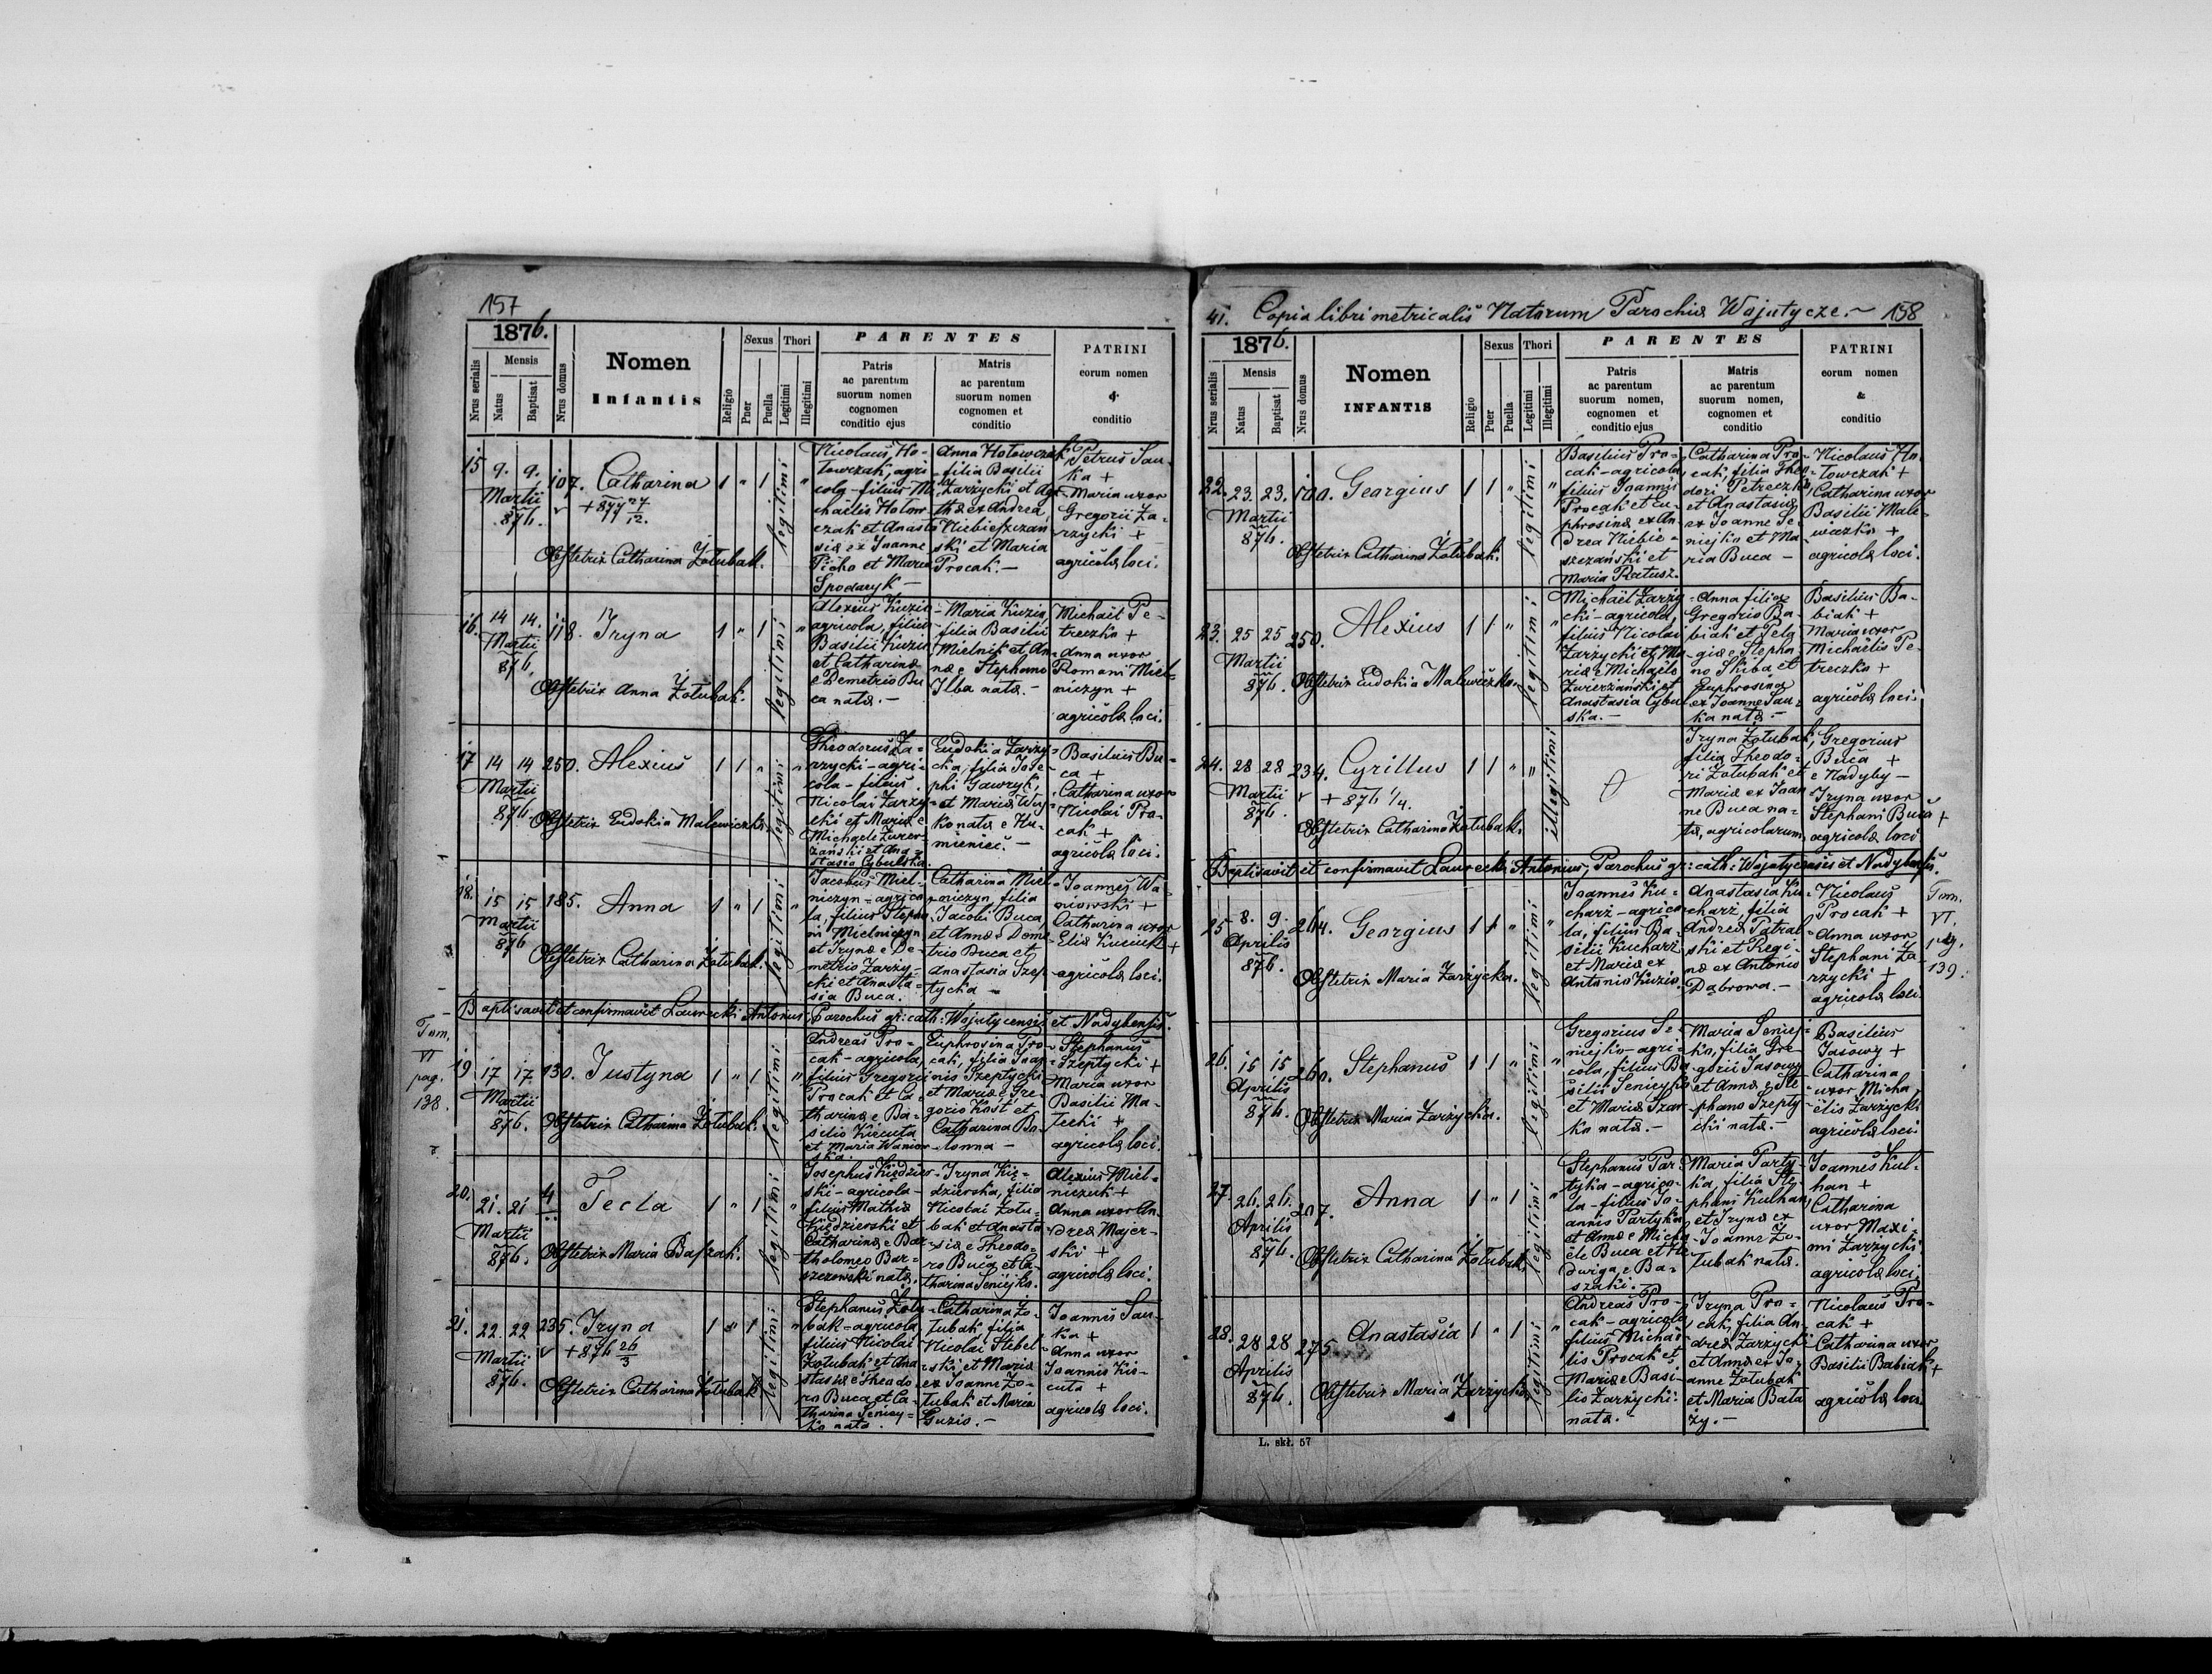 157
1876.
Nrus serialis
Mensis
Natus
Baptisat
Nrus domus
Nomen
Infantis
Religio
Sexus
Puer
Puella
Thori
Legitimi
Illegitimi
PARENTES
Patris
ac parentum
suorum nomen
cognomen
conditio ejus
Matris
ac parentum
suorum nomen
cognomen et
conditio
PATRINI
eorum nomen
&
conditio
15 9. 9. 107. Catharina 1 " 1 legitimi "
Martii
876.
+ 877 27/12.
Obstetrix Catharina Zołubak.
Nicolaus Ho-
łowczak, agri-
cola - filius Mi-
chaelis Hołow-
czak et Anasta-
siæ ex Joanne
Picho et Maria
Spodaryk -
Anna Hołowczak,
filia Basilii
Zarzycki et Aga-
thæ ex Andrea
Niebieszczań-
ski et Maria
Procak. -
Petrus Sau-
ka +
Maria uxor
Gregorii Za-
rzycki +
agricolæ loci.
16. 14 14. 118. Iryna 1 " 1 legitimi "
Martii
876.
Obstetrix Anna Zołubak.
Alexius Kuzio
agricola, filius
Basilii Kuzio
et Catharinæ
e Demetrio Bu-
ca nata. -
Maria Kuzio,
filia Basilii
Mielnik et An-
næ e Stephano
Ilba nata. -
Michael Pe-
treczko +
Anna uxor
Romani Miel-
niczyn +
agricolæ loci.
17 14 14 250. Alexius 1 1 " legitimi "
Martii
876
Obstetrix Eudokia Malewiczka.
Theodorus Za-
rzycki - agri-
cola - filius
Nicolai Zarzy-
cki et Mariæ e
Michaele Zwer-
żański et Ana-
stasia Cybulska.
Eudokia Zarzy-
cka, filia Jose-
phi Gawryk,
et Mariæ Wuj-
ko nata e Hu-
mieniec. -
Basilius Bu-
ca +
Catharina uxor
Nicolai Pro-
cak +
agricolæ loci.
18. 15 15 185. Anna 1 " 1 legitimi "
Martii
876
Obstetrix Catharina Zołubak.
Jacobus Miel-
niczyn - agrico-
la, filius Stepha-
ni Mielniczyn
et Irynæ e De-
metrio Zarzy-
cki et Anasta-
sia Buca.
Catharina Miel-
niczyn, filia
Jacobi Buca
et Annæ e Deme-
trio Buca et
Anastasia Szep-
tycka -
Joannes Wa-
niowski +
Catharina uxor
Eliæ Kuciuk +
agricolæ loci.
Baptisavit et confirmavit Laurecki Antonius, Parochus gr: cath: Wojutycensis et Nadybensis.
Tom.
VI
pag.
138.
19. 17 17 130. Justyna 1 " 1 legitimi "
Martii
876.
Obstetrix Catharina Zołubak.
Andreas Pro-
cak - agricola,
filius Gregorii
Procak et Ca-
tharinæ e Ba-
silio Kiecuta
et Maria Waniow-
ska.
Euphrosina Pro-
cak, filia Joan-
nis Szeptycki
et Mariæ e Gre-
gorio Kost et
Catharina Bo-
lonna -
Stephanus
Szeptycki +
Maria uxor
Basilii Ma-
łecki +
agricolæ loci.
20. 21. 21 4 Tecla 1 " 1 legitimi "
Martii
876.
Obstetrix Maria Baszak.
Josephus Kiędzier-
ski - agricola -
filius Mathiæ
Kiędzierski et
Catharinæ e Bar-
tholomeo Bar-
szczowski nata.
Iryna Kię-
dzierska, filia
Nicolai Zołu-
bak et Anasta-
siæ e Theodo-
ro Buca et Ca-
tharina Seniejko.
Alexius Miel-
niczuk +
Anna uxor An-
dreæ Majer-
ski +
agricolæ loci.
21. 22. 22 235. Iryna 1 " 1 legitimi "
Martii
876.
+ 876 26/3
Obstetrix Catharina Zołubak
Stephanus Zołu-
bak - agricola
filius Nicolai
Zołubak et Ana-
stasiæ e Theodo-
ro Buca et Ca-
tharina Seniey-
ko nata.
Catharina Zo-
łubak filia
Nicolai Stebel-
ski et Mariæ
ex Joanne Zo-
łubak et Maria
Guzio. -
Joannes Sau-
ka +
Anna uxor
Joannis Kie-
cuta +
agricolæ loci.
41. Copia libri metricalis Natorum Parochiæ Wojutycze. ~ 158
1876.
Nrus serialis
Mensis
Natus
Baptisat
Nrus domus
Nomen
INFANTIS
Religio
Sexus
Puer
Puella
Thori
Legitimi
Illegitimi
PARENTES
Patris
ac parentum
suorum nomen,
cognomen et
conditio ejus
Matris
ac parentum
suorum nomen,
cognomen et
conditio
PATRINI
eorum nomen
&
conditio
22. 23. 23. 100. Georgius 1 1 " legitimi "
Martii
876.
Obstetrix Catharina Zołubak.
Basilius Pro-
cak - agricola,
filius Joannis
Procak et Eu-
phrosinæ ex An-
drea Niebie-
szczański et
Maria Ratusz.
Catharina Pro-
cak, filia Theo-
dori Petreczko,
et Anastasiæ
ex Joanne Se-
niejko et Ma-
ria Buca -
Nicolaus Ho-
łowczak +
Catharina uxor
Basilii Male-
wiczko +
agricolæ loci.
23. 25 25 250. Alexius 1 1 " legitimi "
Martii
876.
Obstetrix Eudokia Malewiczka.
Michael Zarzy-
cki - agricola,
filius Nicolai
Zarzycki et Ma-
riæ e Michaele
Zwerżański et
Anastasia Cybul-
ska. -
Anna filia
Gregorio Ba-
biak et Pela-
giæ e Stepha-
no Skiba et
Euphrosina
ex Joanne Sau-
ka nata. -
Basilius Ba-
biak +
Maria uxor
Michaelis Pe-
treczko +
agricolæ loci.
24. 28 28 234. Cyrillus 1 1 " " illegitimi
Martii
876
+ 876 1/4.
Obstetrix Catharina Zołubak.
Iryna Zołubak,
filia Theodo-
ri Zołubak et
Mariæ ex Joan-
ne Buca na-
ta, agricolarum
Gregorius
Buca +
e Nadyby -
Iryna uxor
Stephani Buca +
agricolæ loci
Baptisavit et confirmavit Laurecki Antonius, Parochus gr: cath: Wojutycensis et Nadybensis.
25 8. 9. 264. Georgius 1 1 " legitimi "
Aprilis
876.
Obstetrix Maria Zarzycka.
Joannes Ku-
charz - agrico-
la, filius Ba-
silii Kucharz
et Mariæ ex
Antonio Kuzio.
Anastasia Ku-
charz, filia
Andreæ Patral-
ski et Regi-
næ ex Antonio
Dąbrowa. -
Nicolaus
Procak +
Anna uxor
Stephani Za-
rzycki +
agricolæ loci
Tom.
VI.
pag.
139.
26. 15 15 260. Stephanus 1 1 " legitimi "
Aprilis
876.
Obstetrix Maria Zarzycka.
Gregorius Se-
niejko - agri-
cola, filius Ba-
silii Senieyko
et Mariæ Szar-
ko nata. -
Maria Seniej-
ko, filia Gre-
gorii Jasowy
et Annæ e Ste-
phano Szepty-
cki nata. -
Basilius
Jasowy +
Catharina
uxor Micha-
elis Zarzycki
agricolæ loci.
27. 26. 26. 207. Anna 1 " 1 legitimi "
Aprilis
876.
Obstetrix Catharina Zołubak.
Stephanus Par-
tyka - agrico-
la - filius Jo-
annis Partyka
et Annæ e Micha-
ele Buca et He-
dwiga e Ba-
szaki.
Maria Party-
ka, filia Ste-
phani Kulhan
et Irynæ ex
Joanne Zo-
łubak nata.
Joannes Kul-
han +
Catharina
uxor Maxi-
mi Zarzycki
agricolæ loci.
28. 28 28 275 Anastasia 1 " 1 legitimi "
Aprilis
876.
Obstetrix Maria Zarzycka
Andreas Pro-
cak - agricola
filius Michae-
lis Procak et
Mariæ e Basi-
lis Zarzycki
nata. -
Iryna Pro-
cak, filia An-
dreæ Zarzycki
et Annæ ex Jo-
anne Zołubak
et Maria Bata-
zy. -
Nicolaus Pro-
cak +
Catharina uxor
Basilii Babiak +
agricolæ loci.
L. skł. 57